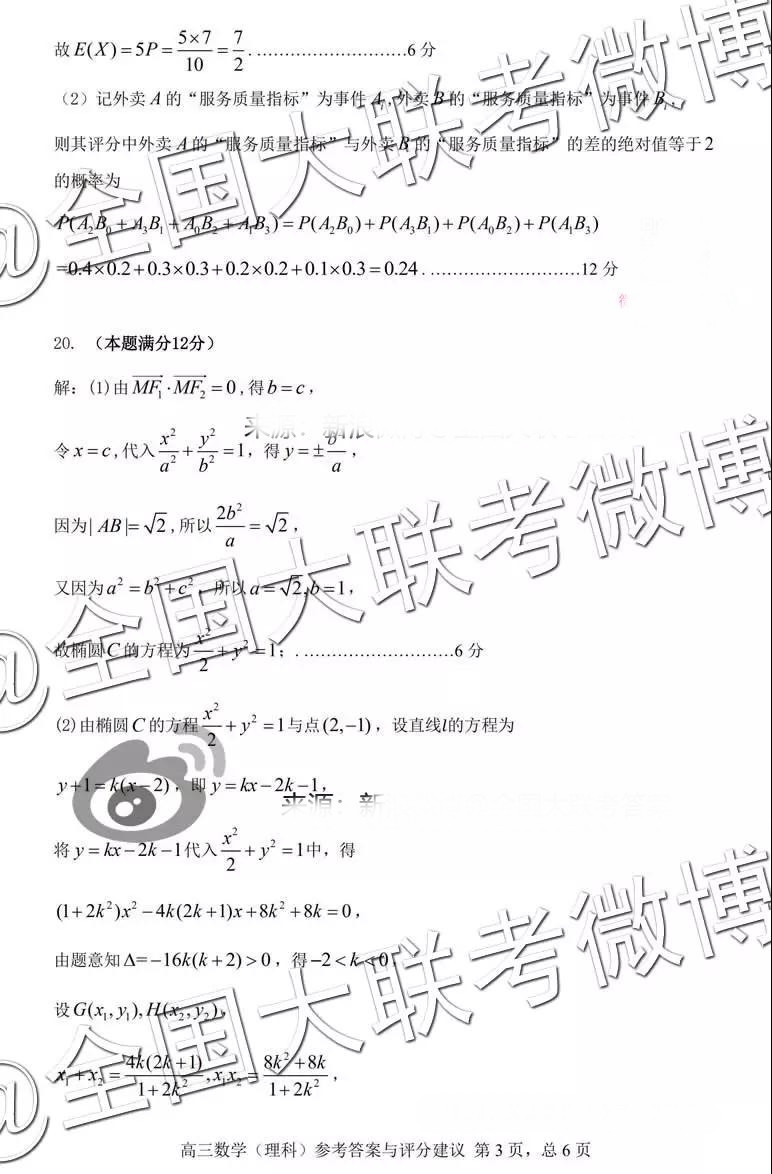 故E(X)=5P=5×7/10=7/2. ………………………6分
(2)记外卖A的“服务质量指标”为事件A_i,外卖B的“服务质量指标”为事件B_i,
则其评分中外卖A的“服务质量指标”与外卖B的“服务质量指标”的差的绝对值等于2
的概率为
P(A₂B₀+A₃B₁+A₀B₂+A₁B₃)=P(A₂B₀)+P(A₃B₁)+P(A₀B₂)+P(A₁B₃)
=0.4×0.2+0.3×0.3+0.2×0.2+0.1×0.3=0.24. ………………………12分
20. (本题满分12分)
解:(1)由MF₁·MF₂=0,得b=c,
来源:新浪
令x=c,代入x²/a²+y²/b²=1,得y=±b/a,
因为|AB|=√2,所以2b²/a=√2,
又因为a²=b²+c²,所以a=√2,b=1,
故椭圆C的方程为x²/2+y²=1;. ………………………6分
(2)由椭圆C的方程x²/2+y²=1与点(2,-1),设直线l的方程为
y+1=k(x-2),即y=kx-2k-1,
来源:新
将y=kx-2k-1代入x²/2+y²=1中,得
(1+2k²)x²-4k(2k+1)x+8k²+8k=0,
由题意知Δ=-16k(k+2)>0,得-2<k<0,
设G(x₁,y₁),H(x₂,y₂),
x₁+x₂=4k(2k+1)/1+2k²,x₁x₂=8k²+8k/1+2k²,
高三数学(理科)参考答案与评分建议 第3页,总6页
@全国大联考微博
@全国大联考微博
@全国大联考微博